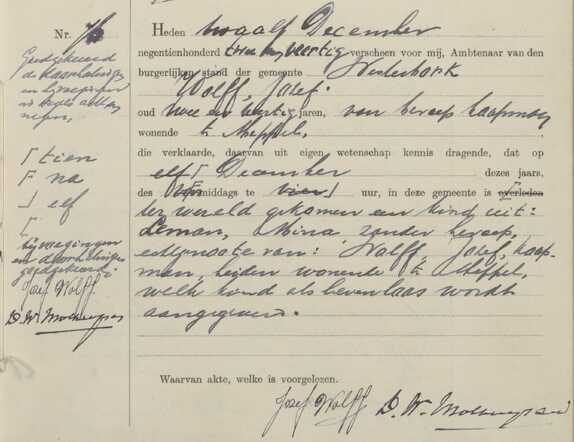 Nr. 76
Goedgekeurd
de doorhalingen
⌈ tien
⌈ na
⌋ elf
⌈
bijvoegingen
en doorhalingen
goedgekeurd
Josef Wolff
Heden twaalf December
negentienhonderd twee en veertig verscheen voor mij, Ambtenaar van den
burgerlijken stand der gemeente Westerbork
Wolff, Josef.
oud twee en veertig jaren, van beroep koopman
wonende te Meppel,
die verklaarde, daarvan uit eigen wetenschap kennis dragende, dat op
elf ⌈ December dezes jaars,
des middags te vier ⌋ uur, in deze gemeente is overleden
ter wereld gekomen een kind uit:
Leman, Mina, zonder beroep,
echtgenoote van: Wolff, Josef, koop-
man, beiden wonende te Meppel,
welk kind als levenloos wordt
aangegeven.
Waarvan akte, welke is voorgelezen.
Josef Wolff D. W.